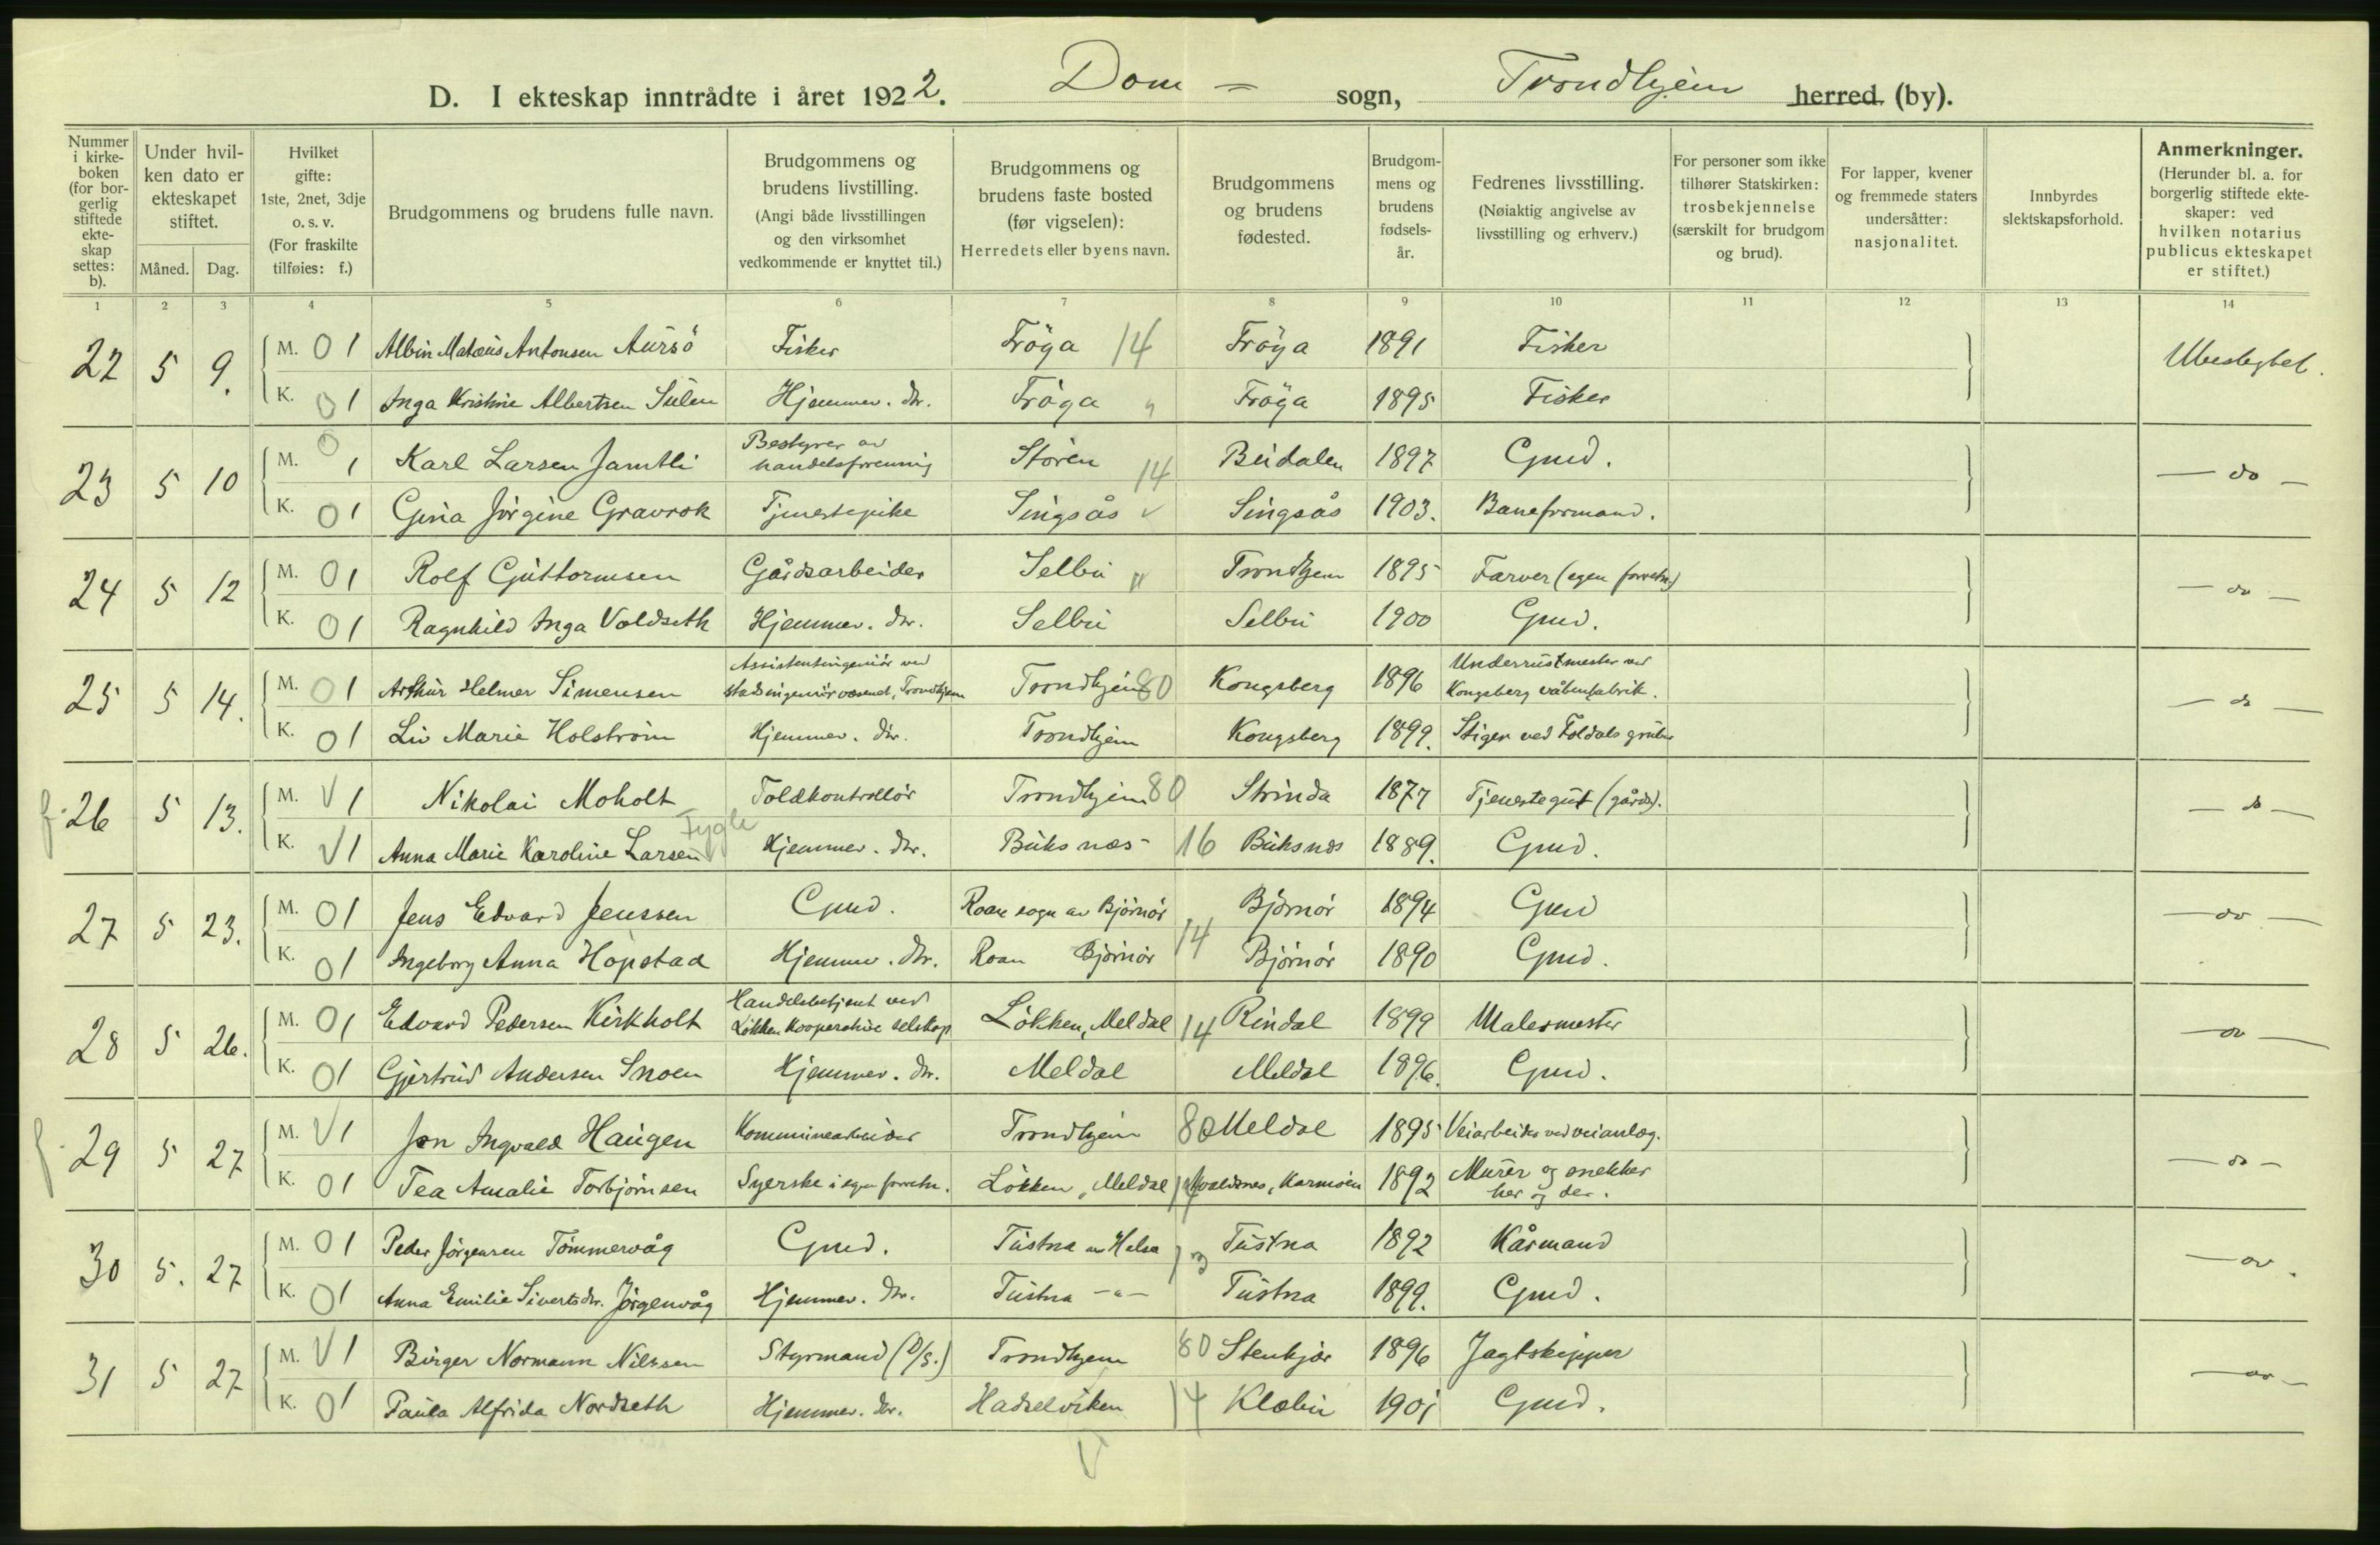 D. I ekteskap inntrådte i året 1922. Dom = sogn, Trondhjem herred (by).
Nummer i kirkeboken (for borgerlig stiftede ekteskap settes: b).
Under hvilken dato er ekteskapet stiftet.
Måned. Dag.
Hvilket gifte: 1ste, 2net, 3dje o. s. v. (For fraskilte tilføies: f.)
Brudgommens og brudens fulle navn.
Brudgommens og brudens livstilling. (Angi både livsstillingen og den virksomhet vedkommende er knyttet til.)
Brudgommens og brudens faste bosted (før vigselen): Herredets eller byens navn.
Brudgommens og brudens fødested.
Brudgommens og brudens fødselsår.
Fedrenes livsstilling. (Nøiaktig angivelse av livsstilling og erhverv.)
For personer som ikke tilhører Statskirken: trosbekjennelse (særskilt for brudgom og brud).
For lapper, kvener og fremmede staters undersåtter: nasjonalitet.
Innbyrdes slektskapsforhold.
Anmerkninger. (Herunder bl. a. for borgerlig stiftede ekteskaper: ved hvilken notarius publicus ekteskapet er stiftet.)
1 2 3 4 5 6 7 8 9 10 11 12 13 14
22 5 9. M. 0 1 Albin Matæus Antonsen Aursö Fisker Fröya 14 Fröya 1891 Fisker Ubeslegtet.
K. 0 1 Inga Kristine Albertsen Sulen Hjemmev. dtr. Fröya " Fröya 1895 Fisker
23 5 10 M. 0 1 Karl Larsen Jamtli Bestyrer av handelsforening Stören 14 Budalen 1897 Gmd. — do —
K. 0 1 Gina Jörgine Gravrok Tjenestepike Singsås v Singsås 1903. Baneformand.
24 5 12 M. 0 1 Rolf Guttormsen Gårdsarbeider Selbu " Trondhjem 1895 Farver (egen forretn.) — do —
K. 0 1 Ragnhild Inga Voldseth Hjemmev. dtr. Selbu Selbu 1900 Gmd.
25 5 14. M. 0 1 Arthur Helmer Simensen Assistentingeniör ved stadsingeniörvæsenet, Trondhjem Trondhjem 80 Kongsberg 1896 Underrustmester ved Kongsberg våbenfabrik. — do —
K. 0 1 Liv Marie Holström Hjemmev. dtr. Trondhjem Kongsberg 1899. Stiger ved Foldals gruber
f. 26 5 13. M. V 1 Nikolai Moholt Toldkontrollör Trondhjem 80 Strinda 1877 Tjenestegut (gårds). — do —
K. V 1 Anna Marie Karoline Larsen Fygle Hjemmev. dtr. Buksnæs 16 Buksnæs 1889. Gmd.
27 5 23. M. 0 1 Jens Edvard Jenssen Gmd. Roan sogn av Björnör 14 Björnör 1894 Gmd — do —
K. 0 1 Ingeborg Anna Hopstad Hjemmev. dtr. Roan Björnör Björnör 1890 Gmd.
28 5 26. M. 0 1 Edvard Pedersen Kirkholt Handelsbetjent ved Lökken kooperative selskap Lökken, Meldal 14 Rindal 1899 Malermester — do —
K. 0 1 Gjertrud Andersen Snoen Hjemmev. dtr. Meldal Meldal 1896. Gmd.
f. 29 5 27 M. V 1 Jon Ingvald Haugen Kommunearbeider Trondhjem 80 Meldal 1895 Veiarbeider ved veianlæg. — do —
K. 0 1 Tea Amalie Torbjörnsen Syerske i egen forretn. Lökken, Meldal 14 Avaldsnes, Karmöen 1892 Murer og snekker her og der.
30 5. 27 M. 0 1 Peder Jörgensen Tömmervåg Gmd. Tustna av Halsa 13 Tustna 1892 Kårmand — do —
K. 0 1 Anna Emilie Sivertsdtr. Jörgenvåg Hjemmev. dtr. Tustna — " — Tustna 1899. Gmd.
31 5 27 M. V 1 Birger Normann Nilssen Styrmand (D/S.) Trondhjem 80 Stenkjær 1896 Jagtskipper — do —
K. 0 1 Paula Alfrida Nordseth Hjemmev. dtr. Hadselviken 14 Klæbu 1901 Gmd.